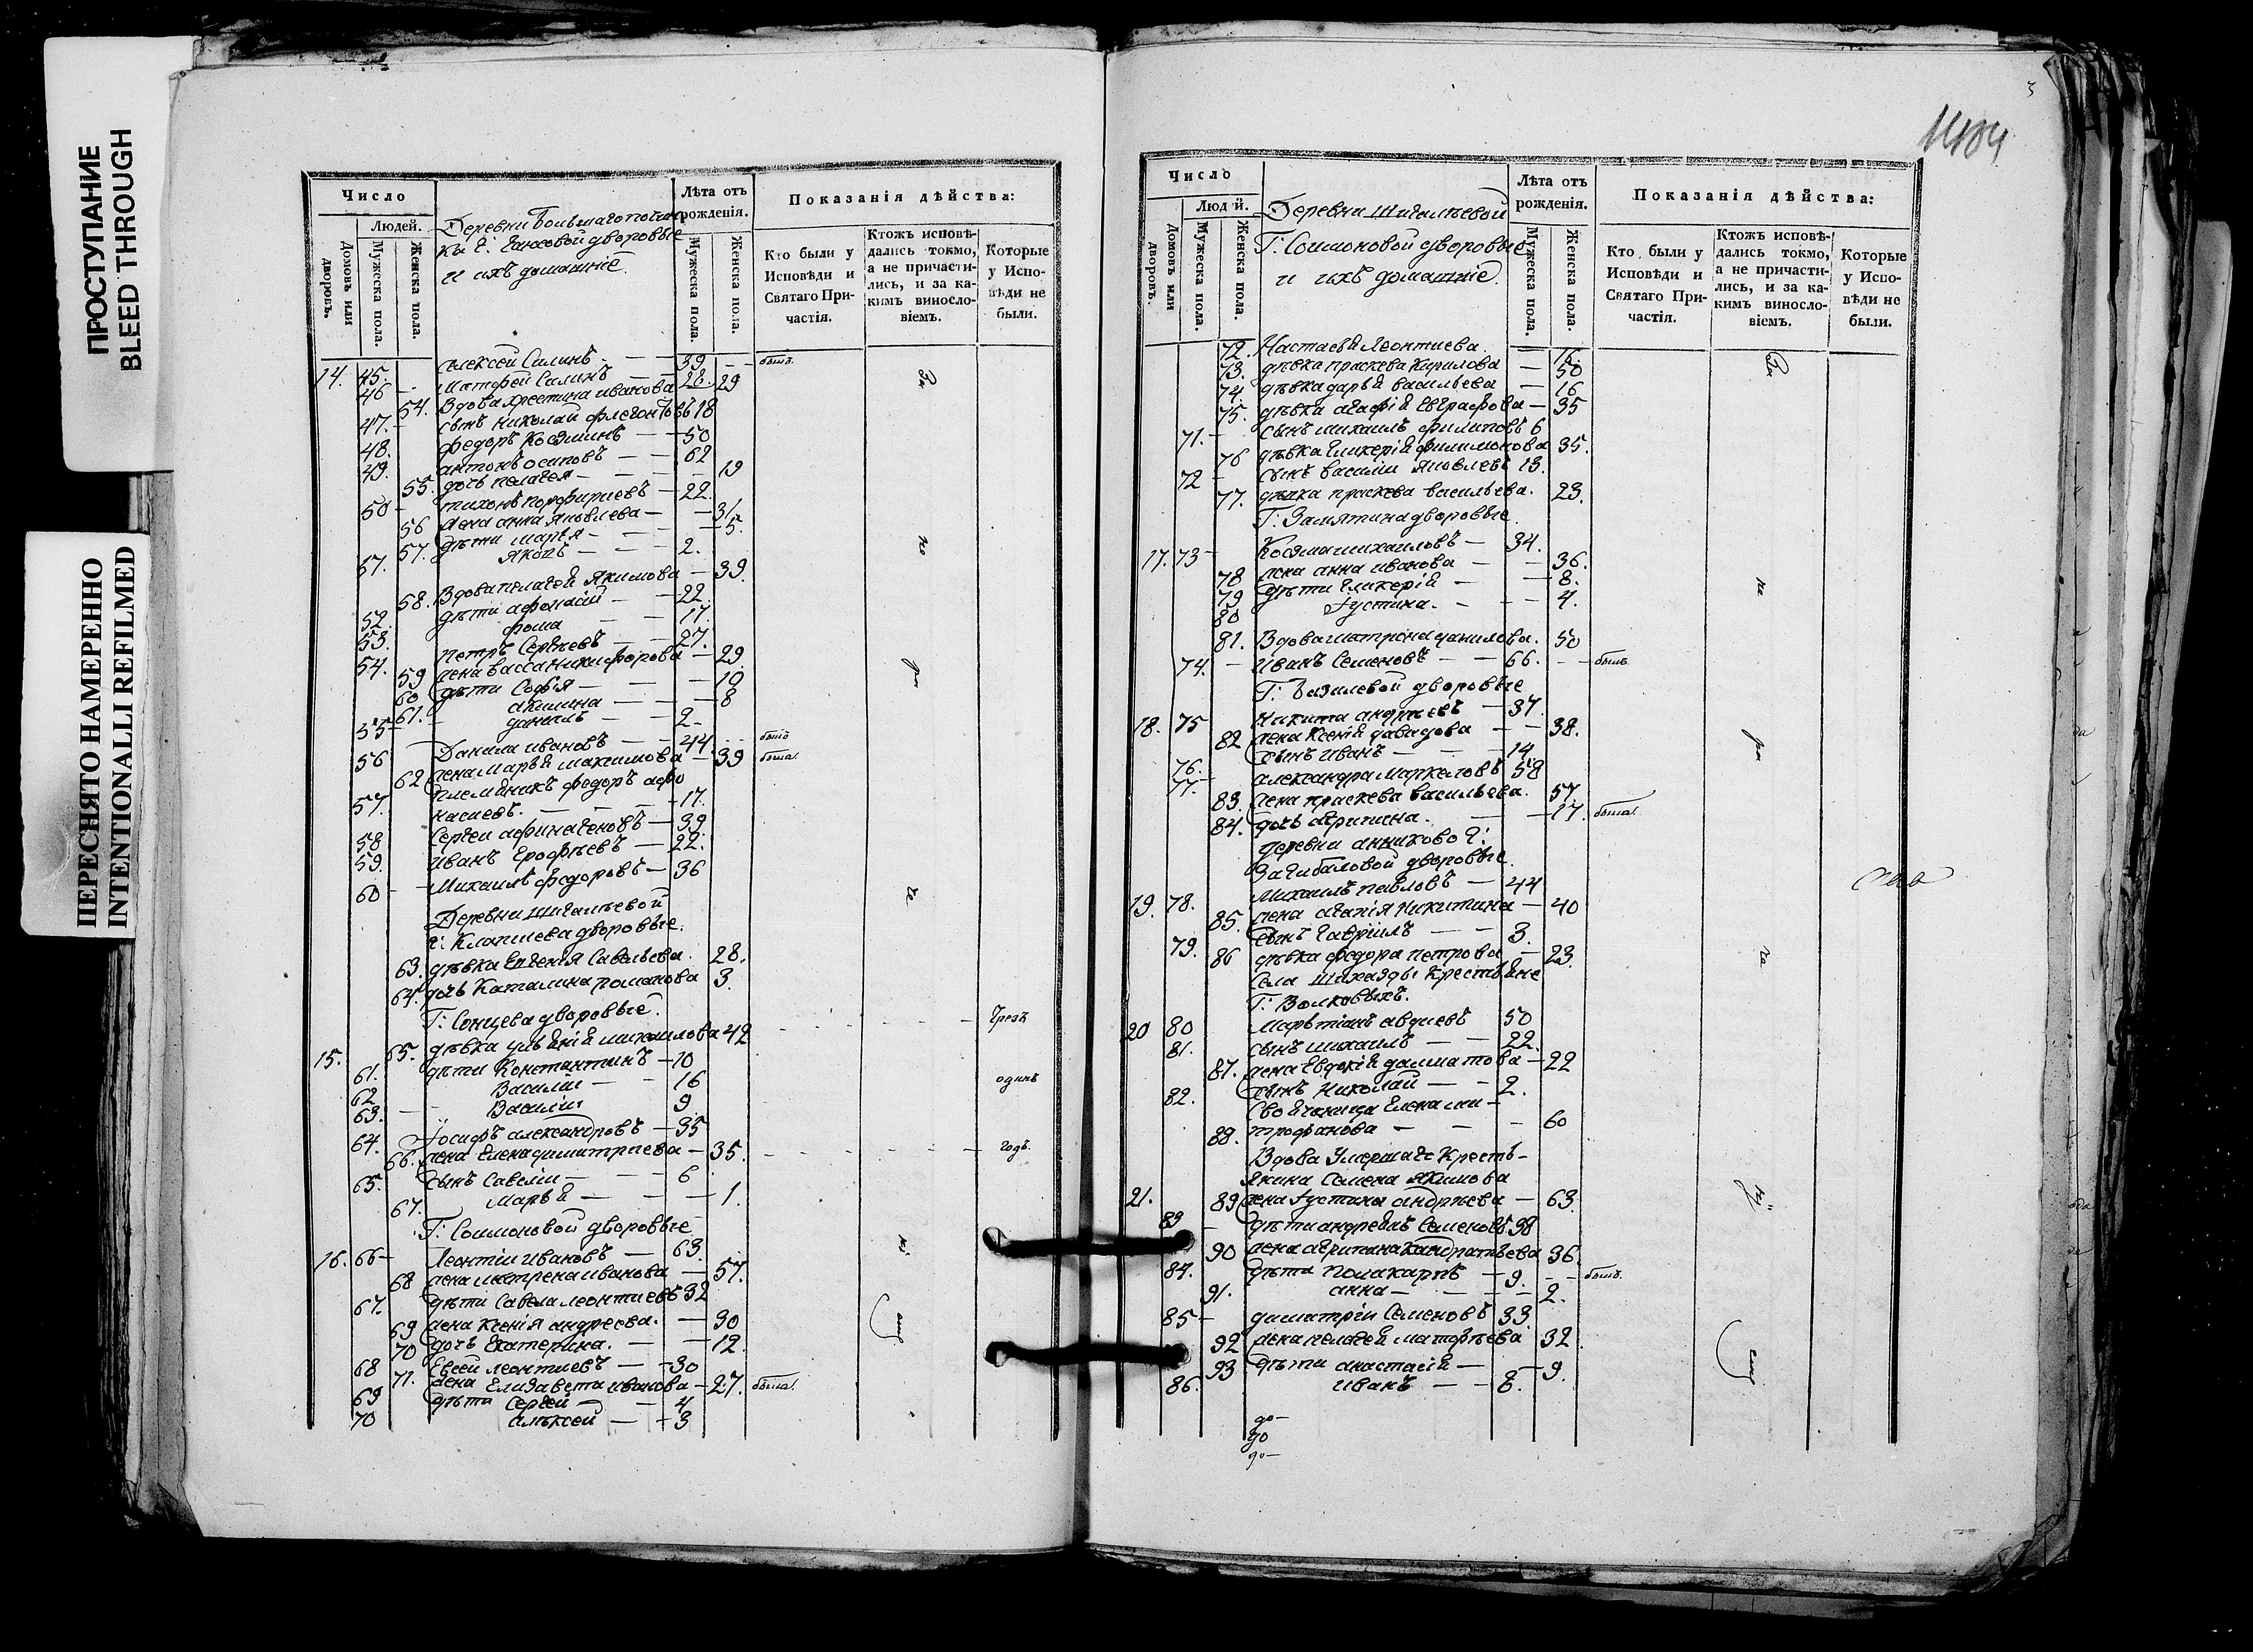 ПРОСТУПАНИЕ
BLEED THROUGH
ПЕРЕСНЯТО НАМЕРЕННО
INTENTIONALLI REFILMED
Число
Людей.
Домовъ или дворовъ.
Мужеска пола.
Женска пола.
Деревни
г: дворовые
и ихъ домашніе.
Лѣта отъ рожденія.
Мужеска пола.
Женска пола.
Показанія дѣйства:
Кто были у Исповѣди и Святаго Причастія.
Ктожъ исповѣдались токмо, а не причастились, и за какимъ винословіемъ.
Которые у Исповѣди не были.
14. 45. алексей Силинъ 39 былъ.
46 матфей Силинъ 28.
54. Вдова християна иванова 29
47. сынъ николай флегонтовъ 18
48. федоръ Косминъ 50
49. антонъ осиповъ 62
55. дочь пелагея 19
50 тихонъ порфириевъ 22.
56 жена анна яковлева 31
57. дѣти марья 5.
67. яковъ 2.
58. Вдова пелагея якимова 39.
52. дѣти афонасій 22.
53. фома 17.
54. петръ Сергѣевъ 27.
59 жена васса никифорова 29
60 дѣти Софья 10
61. акилина 8
55 данилъ 2
56 Данила ивановъ 44 былъ
62 жена марья максимова 39 была.
57. племянникъ федоръ афо
насиевъ. 17.
58 Сергей афиногеновъ 39
59. иванъ Ерофѣевъ 22.
60 Михаилъ федоровъ 36
Деревни Шигалѣевой
г: дворовые.
63. дѣвка Евгенія Савельева. 28.
64. дочь Каталина романова 3.
Г: Сонцева дворовые.
15. 65. дѣвка михаилова 42 чрезъ
61. дѣти Константинъ 10
62 Василій 16 одинъ
63. Василій 9
64. Іосифъ александровъ 35
66. жена Елена димитриева 35. годъ.
65. сынъ Савелій 6
67. марья 1.
Г: Соимоновой дворовые
16. 66 Леонтій ивановъ 63.
68 жена матрена иванова 57.
67. дѣти Савела леонтиевъ 32
69 жена Ксенія андреева. 30
70 дочь Екатерина. 12.
68 Евсей леонтиевъ 30
71. жена Елизавета иванова 27. была.
69 дѣти Сергей 4
70 алѣксей 3
3
Число
Людей.
Домовъ или дворовъ.
Мужеска пола.
Женска пола.
Деревни Шигалѣевой
Г: Соимоновой дворовые
и ихъ домашніе.
Лѣта отъ рожденія.
Мужеска пола.
Женска пола.
Показанія дѣйства:
Кто были у Исповѣди и Святаго Причастія.
Ктожъ исповѣдались токмо, а не причастились, и за какимъ винословіемъ.
Которые у Исповѣди не были.
72. Настасья Леонтиева 16.
73. дѣвка праскева Кирилова 50
74. дѣвка дарья васильева 16
75. дѣвка агафія Евграфова 35
71. сынъ михаилъ филиповъ 6
76 дѣвка гликерія филимонова 35.
72 сынъ василій яковлевъ 13.
77. дѣвка праскева васильева. 23.
Г: Замятина дворовые.
17. 73 Косма михаиловъ 34.
78 жена анна иванова 36.
79 дѣти гликерія 8.
80 густина. 4.
81. Вдова матрона данилова. 50
74. иванъ Семеновъ 66. былъ.
Г: дворовые
18. 75 никита андреевъ 37.
82 жена Ксенія давидова 38.
76. сынъ иванъ 14
77. александра маркеловъ 58
83. жена праскева васильева. 57
84. дочь агрипена. 17. была.
деревни анниково г:
Загибаловой дворовые.
19. 78. михаилъ павловъ 44
85. жена агапія никитина 40
79. сынъ гавріилъ 3.
86 дѣвка федора петрова 23
Села крестьяне
Г: Волковыхъ.
20 80 авдиевъ 50
81. сынъ михаилъ 22.
87. жена Евдокія далматова 22
82. сынъ николай 2.
Свойченица Елена ми
88. трофанова 60
Вдова Умершаго Кресть-
янина Семена якимова
21. 89 жена густина андреева 63
83 дѣти андреянъ Семеновъ 38
90 жена агрипена кандратьева 36.
84. дѣти поликарпъ 9. былъ.
91. анна 2.
85 димитрій Семеновъ 33
92 жена пелагея матфѣева 32
93 дѣти анастасія 9.
86. иванъ 8.
до
до
до